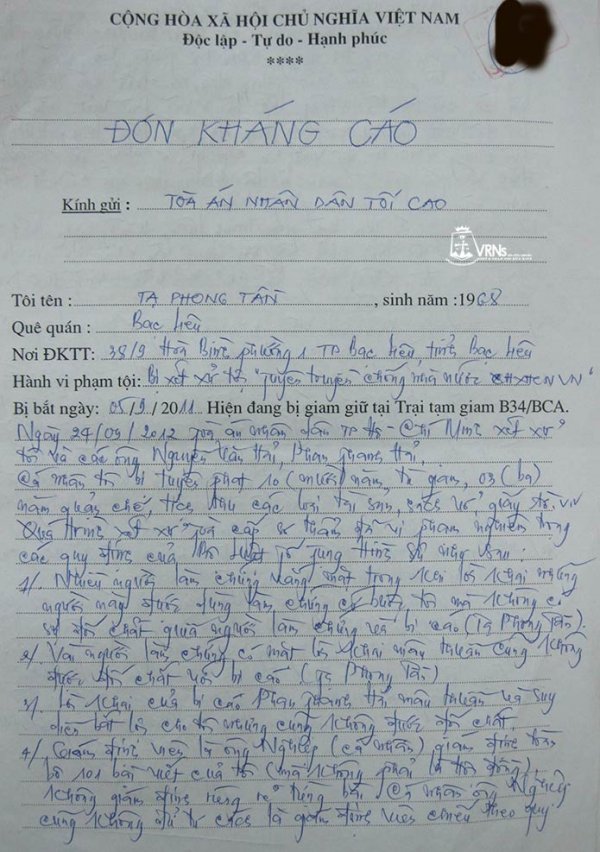 CỘNG HÒA XÃ HỘI CHỦ NGHĨA VIỆT NAM
Độc lập - Tự do - Hạnh phúc
****
ĐƠN KHÁNG CÁO
Kính gửi : TOÀ ÁN NHÂN DÂN TỐI CAO
VRNs
Tôi tên : TẠ PHONG TẦN , sinh năm :1968
Quê quán : Bạc Liêu
Nơi ĐKTT: 38/9 Hoà Bình phường 1 TP Bạc Liêu, tỉnh Bạc Liêu
Hành vi phạm tội: Bị xét xử tội "tuyên truyền chống nhà nước CHXHCNVN"
Bị bắt ngày: 05/9/2011 Hiện đang bị giam giữ tại Trại tạm giam B34/BCA.
Ngày 24/09/2012 toà án nhân dân TP Hồ Chí Minh xét xử
tôi và các ông Nguyễn Văn Hải, Phan Thanh Hải,
Cá nhân tôi bị tuyên phạt 10 (mười) năm tù giam, 03 (ba)
năm quản chế, thu các loại tài sản, giấy tờ.
Quá trình xét xử toà cấp sơ thẩm đã vi phạm nghiêm trọng
các quy định của Bộ luật tố tụng hình sự như sau:
1/ Nhiều người làm chứng vắng mặt trong khi lời khai những
người này được dùng làm chứng cứ buộc tội mà không có
sự đối chất giữa người làm chứng và bị cáo (Tạ Phong Tần).
2/ Vài người làm chứng có mặt lời khai mâu thuẫn cũng không
được đối chất với bị cáo (Tạ Phong Tần)
3/. Lời khai của bị cáo Phan Thanh Hải mâu thuẫn và suy
diễn bất lợi cho tôi nhưng cũng không được đối chất
4/ Giám định viên là ông Nghiệp (cá nhân) giám định toàn
bộ 101 bài viết của tôi (mà không phải là hội đồng),
không giám định riêng rẽ từng bài. Cá nhân ông Nghiệp
cũng không đủ tư cách là giám định viên chiếu theo quy